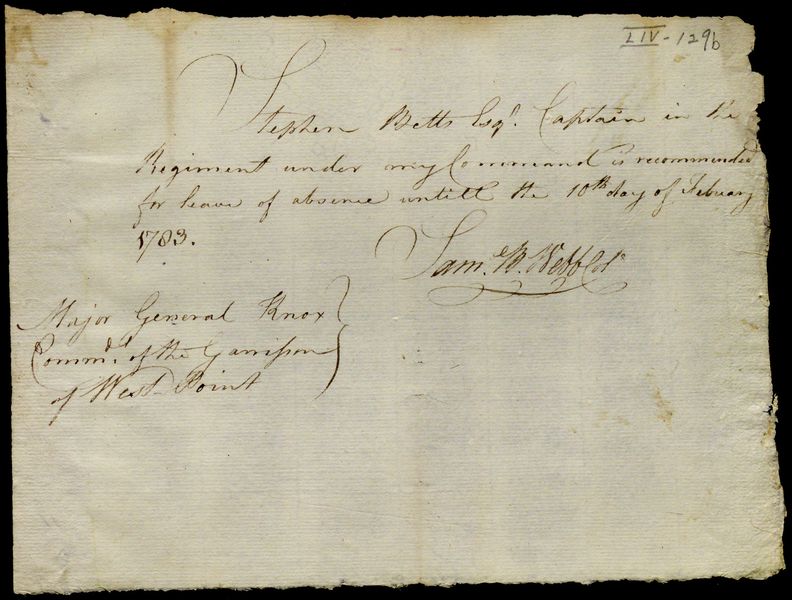 LIV-129b
Stephen Betts Esqr. Captain in the
Regiment under my Command is recommended
for leave of absence untill the 10th day of Febuary
1783.
Saml. B. Webb Col
Major General Knox
Commd. of the Garrison
of West-Point